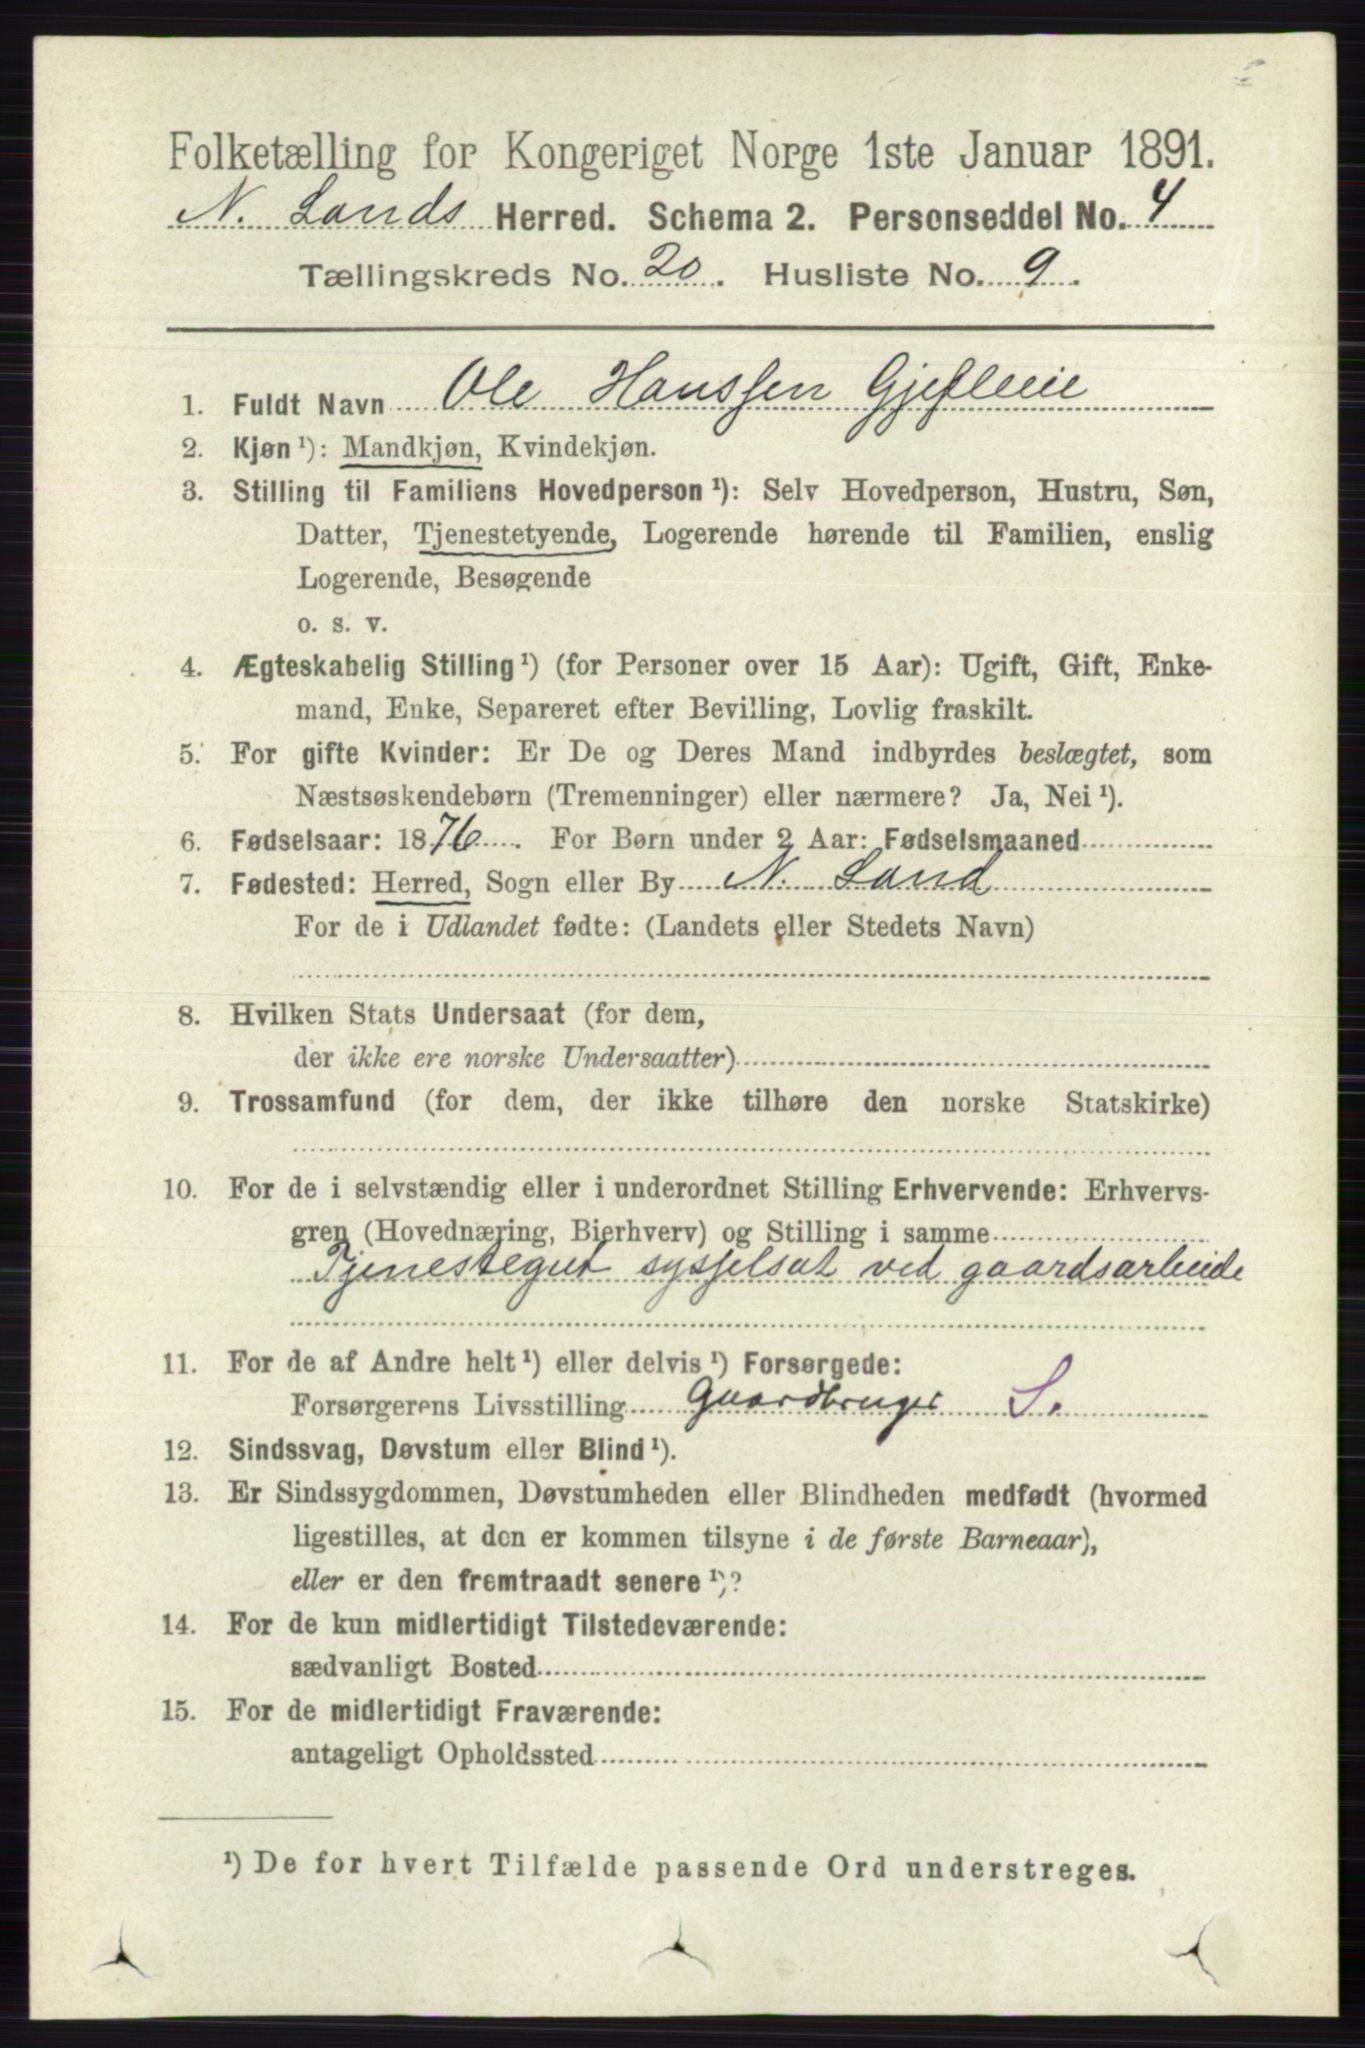 Folketælling for Kongeriget Norge 1ste Januar 1891.
N. Lands Herred. Schema 2. Personseddel No. 4
Tællingskreds No. 20. Husliste No. 9.
1. Fuldt Navn Ole Hanssen Gjefleeie
2. Kjøn¹): Mandkjøn, Kvindekjøn.
3. Stilling til Familiens Hovedperson¹): Selv Hovedperson, Hustru, Søn,
Datter, Tjenestetyende, Logerende hørende til Familien, enslig
Logerende, Besøgende
o. s. v.
4. Ægteskabelig Stilling¹) (for Personer over 15 Aar): Ugift, Gift, Enke-
mand, Enke, Separeret efter Bevilling, Lovlig fraskilt.
5. For gifte Kvinder: Er De og Deres Mand indbyrdes beslægtet, som
Næstsøskendebørn (Tremenninger) eller nærmere? Ja, Nei¹).
6. Fødselsaar: 1876. For Børn under 2 Aar: Fødselsmaaned
7. Fødested: Herred, Sogn eller By N. Land
For de i Udlandet fødte: (Landets eller Stedets Navn)
8. Hvilken Stats Undersaat (for dem,
der ikke ere norske Undersaatter)
9. Trossamfund (for dem, der ikke tilhøre den norske Statskirke)
10. For de i selvstændig eller i underordnet Stilling Erhvervende: Erhvervs-
gren (Hovednæring, Bierhverv) og Stilling i samme
Tjenestegut sysselsat ved gaardsarbeide
11. For de af Andre helt¹) eller delvis¹) Forsørgede:
Forsørgerens Livsstilling Gaardbruger S.
12. Sindssvag, Døvstum eller Blind¹).
13. Er Sindssygdommen, Døvstumheden eller Blindheden medfødt (hvormed
ligestilles, at den er kommen tilsyne i de første Barneaar),
eller er den fremtraadt senere¹)?
14. For de kun midlertidigt Tilstedeværende:
sædvanligt Bosted
15. For de midlertidigt Fraværende:
antageligt Opholdssted
¹) De for hvert Tilfælde passende Ord understreges.